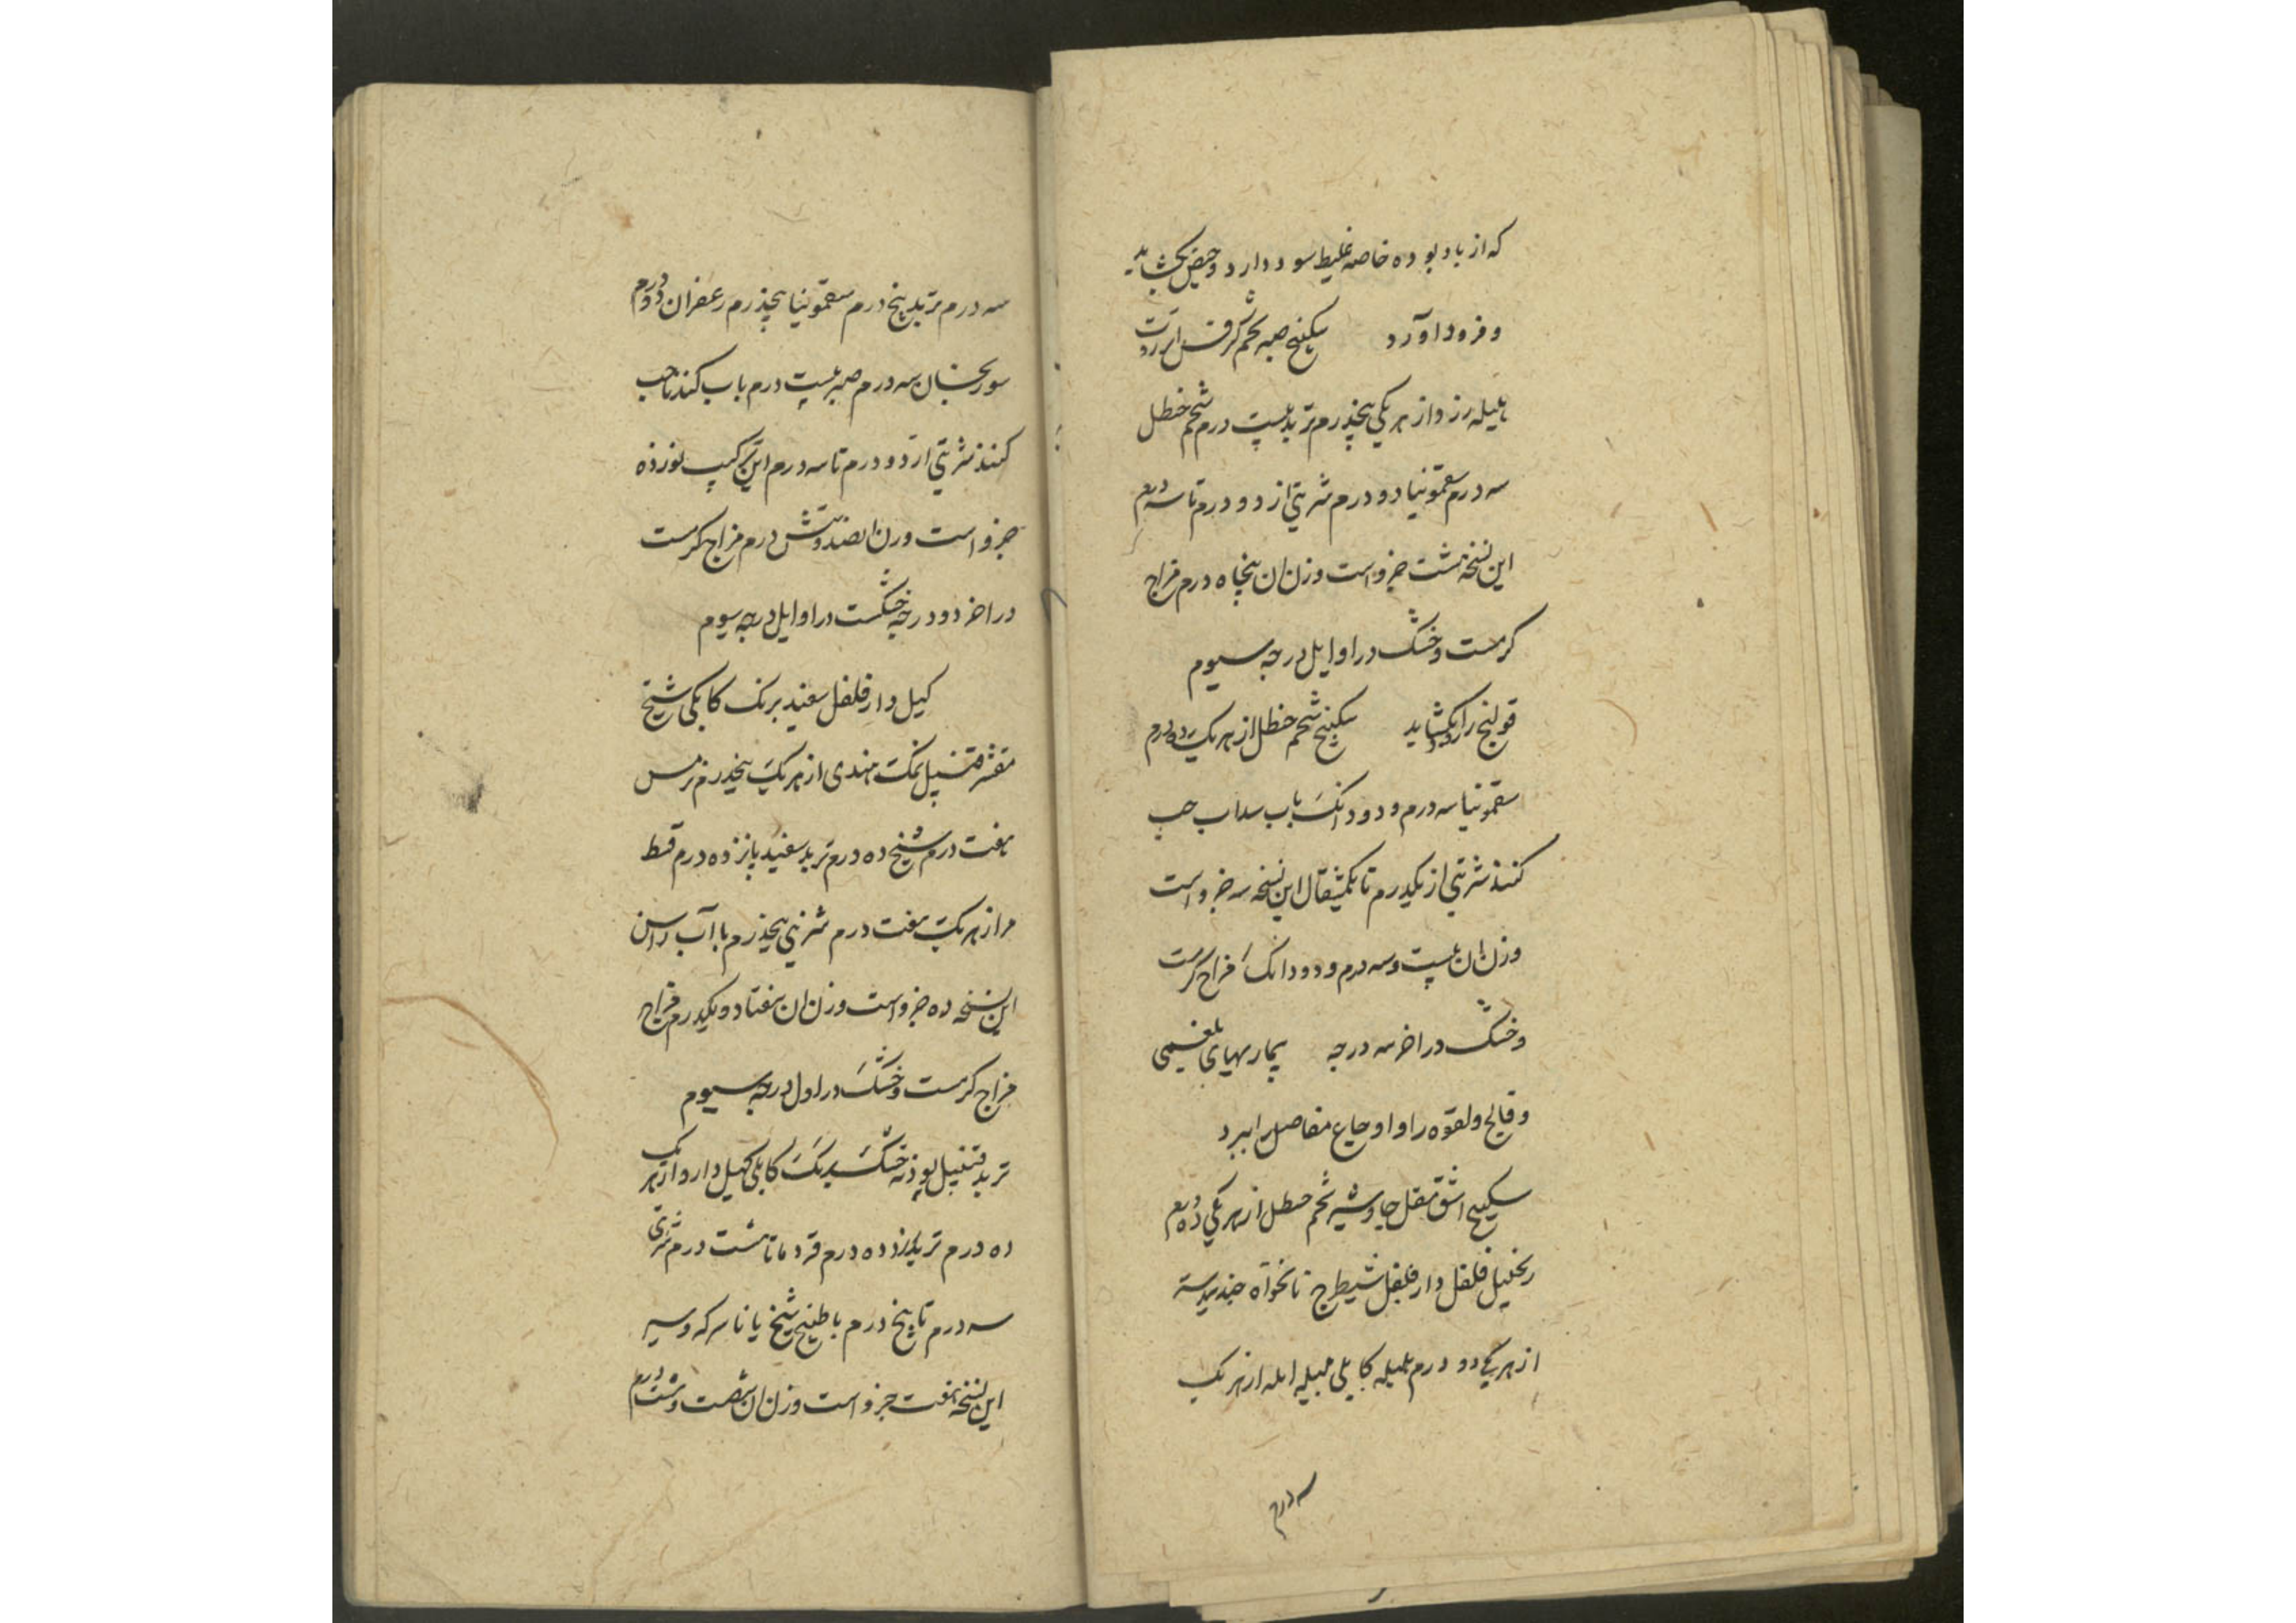 که از باد بوده خاصه غلیظ سود دارد و حیض بکشاید
و فرود آورد سکبینج صبر تخم کرفس انزروت
هلیله زرد از هر یکی پنجدرم تربد بیست درم شحم حنظل
سه درم سقمونیا دو درم شربتی از دو درم تا سه درم
این نسخه هشت جزو است وزن ان پنجاه درم مزاج
کرمست و خشک در اوایل درجه سیوم
قولنج را بکشاید سکبینج شحم حنظل از هر یک ده درم
سقمونیا سه درم و دو دانک باب سداب حب
کنند شربتی از یکدرم تا یکمثقال این نسخه سه جزو است
وزن ان بیست و سه درم و دو دانک مزاج کرمست
و خشک در اخر سه درجه بیماریهای بلغمی
و فالج و لقوه را و اوجاع مفاصل را ببرد
سکبینج اشق مقل جاوشیر شحم حنظل از هر یکی ده درم
زنجبیل فلفل دارفلفل شیطرج نانخواه جندبیدستر
از هر یکی دو درم هلیله کابلی هلیله امله از هر یک
سه درم
سه درم تربد پنج درم سقمونیا پنجدرم زعفران دو درم
سورنجان سه درم صبر بیست درم باب کندنا حب
کنند شربتی از دو درم تا سه درم این ترکیب نوزده
جزو است وزن ان صد و شش درم مزاج کرمست
در اخر دو درجه خشکست در اوایل درجه سیوم
کیل دارفلفل سفید برنک کابلی شیح
مقشر قنبیل نمک هندی از هر یک پنجدرم ترمس
هفت درم شیح ده درم تربد سفید پانزده درم قسط
مر از هر یک هفت درم شربتی پنجدرم با آب راسن
این نسخه ده جزو است وزن ان هفتاد و یکدرم مزاج
مزاج کرمست و خشک در اول درجه سیوم
تربد قنبیل پودنه خشک برنک کابلی کیل دارو از هر یک
ده درم تربد ده درم قردمانا هشت درم شربتی
سه درم تا پنج درم با طبیخ شیح یا با سرکه و سیر
این نسخه هفت جزو است وزن ان شصت و هشت درم